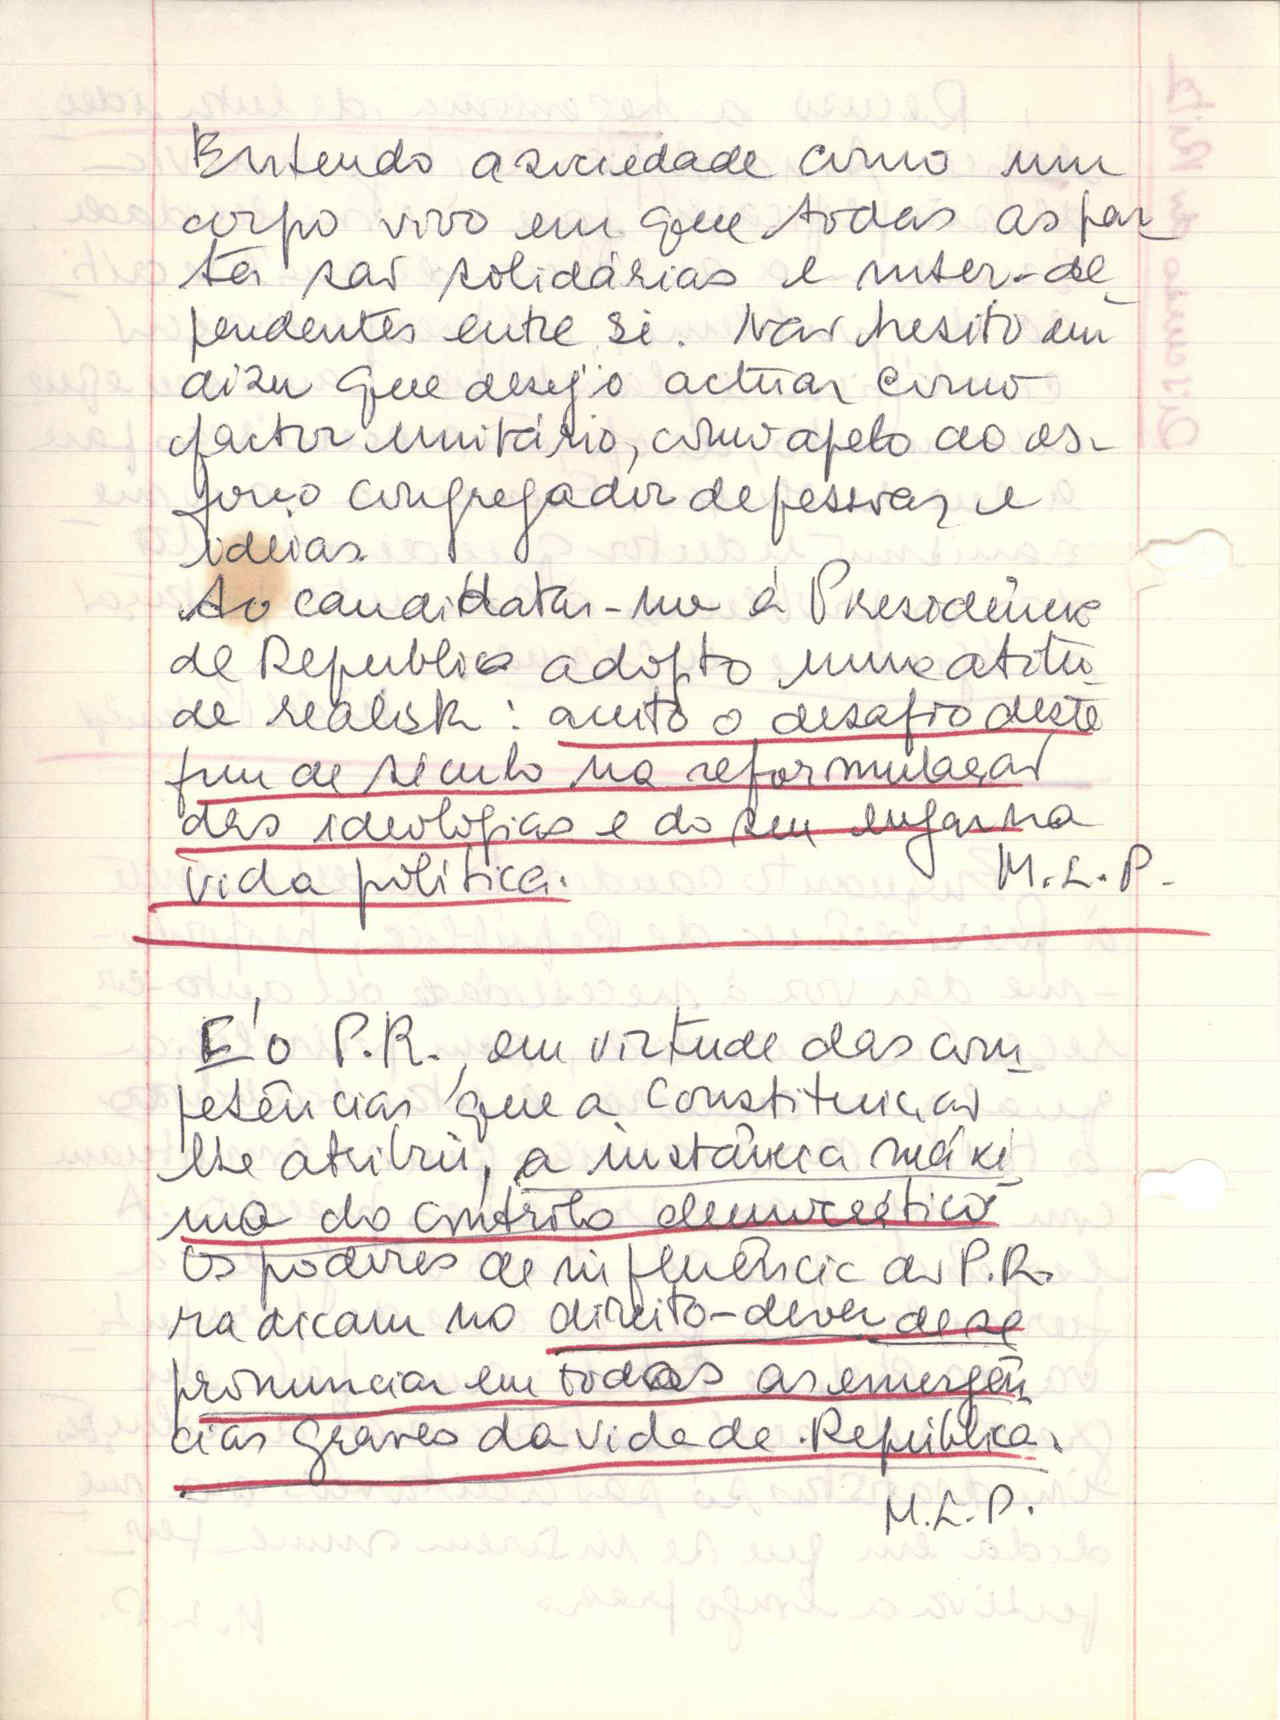 Entendo a sociedade como um
corpo vivo em que todas as par-
tes são solidárias e inter-de-
pendentes entre si. Não hesito em
dizer que desejo actuar como
factor unitário, como apelo ao es-
forço congregador de pessoas e
ideias.
Ao candidatar-me à Presidência
da República adopto uma atitu-
de realista: aceito o desafio deste
fim de século na reformulação
das ideologias e do seu lugar na
vida política. M.L.P.
É o P.R., em virtude das com-
petências que a Constituição
lhe atribui, a instância máxi-
ma do contrôlo democrático
Os poderes de influência do P.R.
radicam no direito-dever de se
pronunciar em todas as emergên-
cias graves da vida da República.
M.L.P.